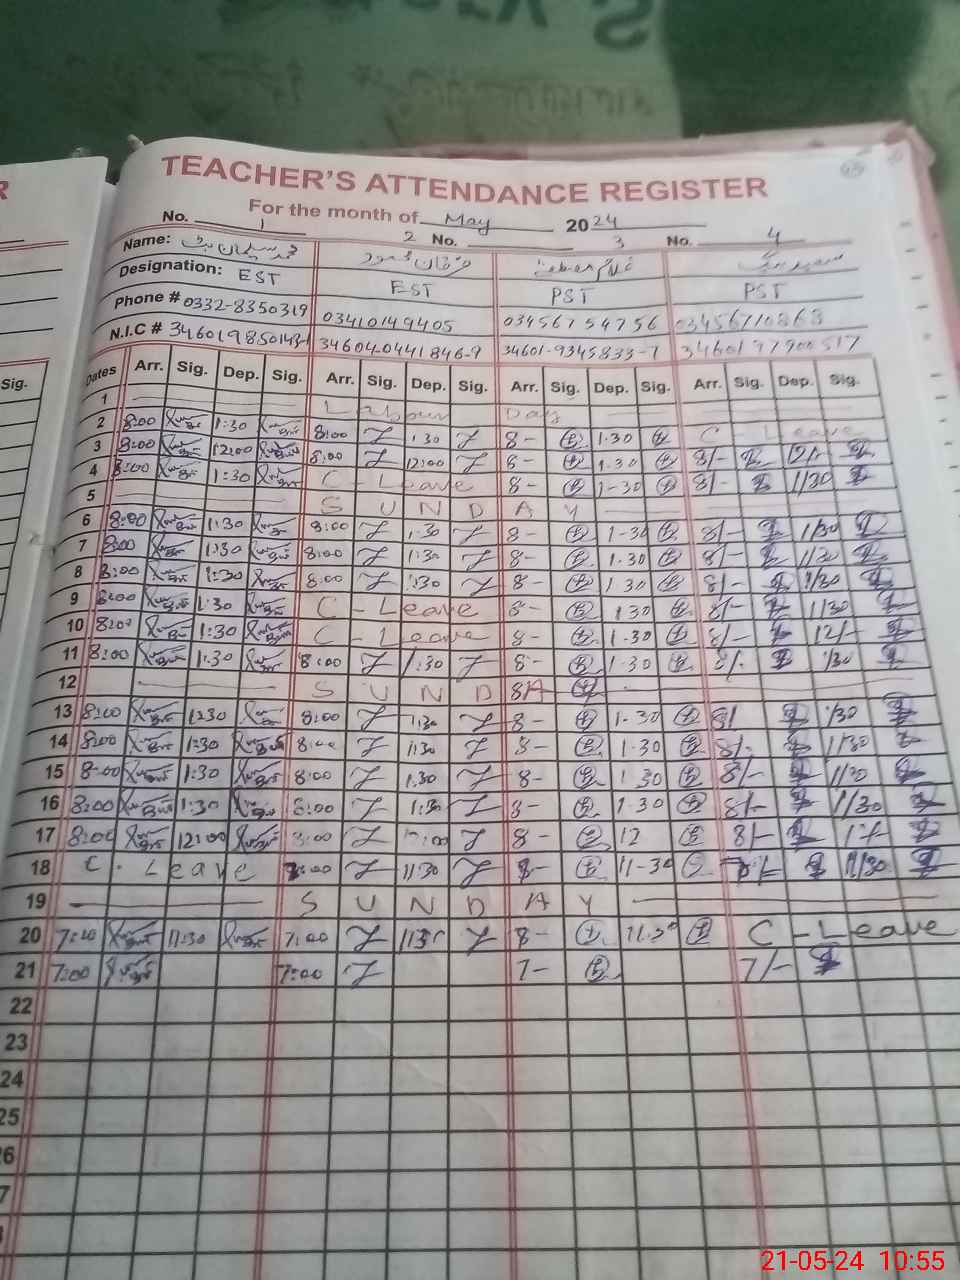 TEACHER'S ATTENDANCE REGISTER
For the month of May 2024
No. 1 2 No. 3 No. 4
Name:
Designation: EST EST PST PST
Phone # 0332-8350319 03410149405 03456754756 03456710868
N.I.C # 34604-0441846-9 34601-9345833-7
Dates Arr. Sig. Dep. Sig. Arr. Sig. Dep. Sig. Arr. Sig. Dep. Sig. Arr. Sig. Dep. Sig.
1 Labour Day
2 8:00 1:30 8:00 1:30 8- 1.30 C-Leave
3 8:00 12:00 8:00 12:00 8- 1.30 8/- 12/-
4 8:00 1:30 C-Leave 8- 1-30 8/- 1/30
5 SUNDAY
6 8:00 1:30 8:00 1:30 8- 1-30 8/- 1/30
7 8:00 1:30 8:00 1:30 8- 1.30 8/- 1/30
8 8:00 1:30 8:00 1:30 8- 1.30 8/- 1/30
9 8:00 1:30 C-Leave 8- 1.30 8/- 1/30
10 8:00 1:30 C-Leave 8- 1-30 8/- 12/-
11 8:00 1:30 8:00 1:30 8- 1-30 8/- 1/30
12 SUND 8A
13 8:00 1230 8:00 1:30 8- 1-30 8/ 1/30
14 8:00 1:30 8:00 1:30 8- 1.30 8/- 1/30
15 8:00 1:30 8:00 1:30 8- 1.30 8/- 1/30
16 8:00 1:30 8:00 1:30 8- 1.30 8/- 1/30
17 8:00 12:00 8:00 12:00 8- 12 8/-
18 C-Leave 7:00 11:30 8- 11-30 11/30
19 SUNDAY
20 7:00 11:30 7:00 1130 8- 11.30 C-Leave
21 7:00 7:00 7- 7/-
22
23
24
25
26
21-05-24 10:55
Sig.